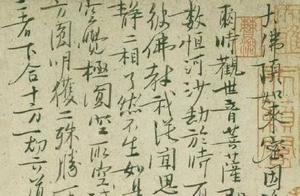 大佛頂如來密因
爾時觀世音菩薩
數恒河沙劫於時有
彼佛教我從聞思
靜二相了然不生如
空覺極圓空所空
方圓明獲二殊勝
二者下合十方一切六道